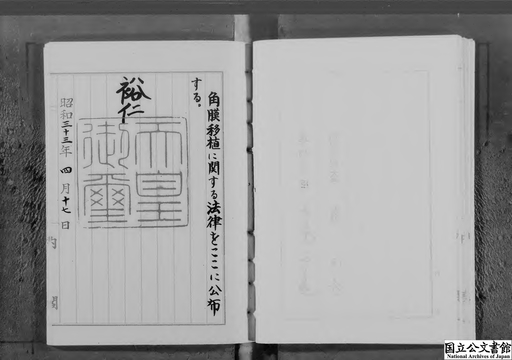 角膜移植に関する法律をここに公布
する。
裕仁
天皇
御璽
昭和三十三年四月十七日
内閣
国立公文書館
National Archives of Japan